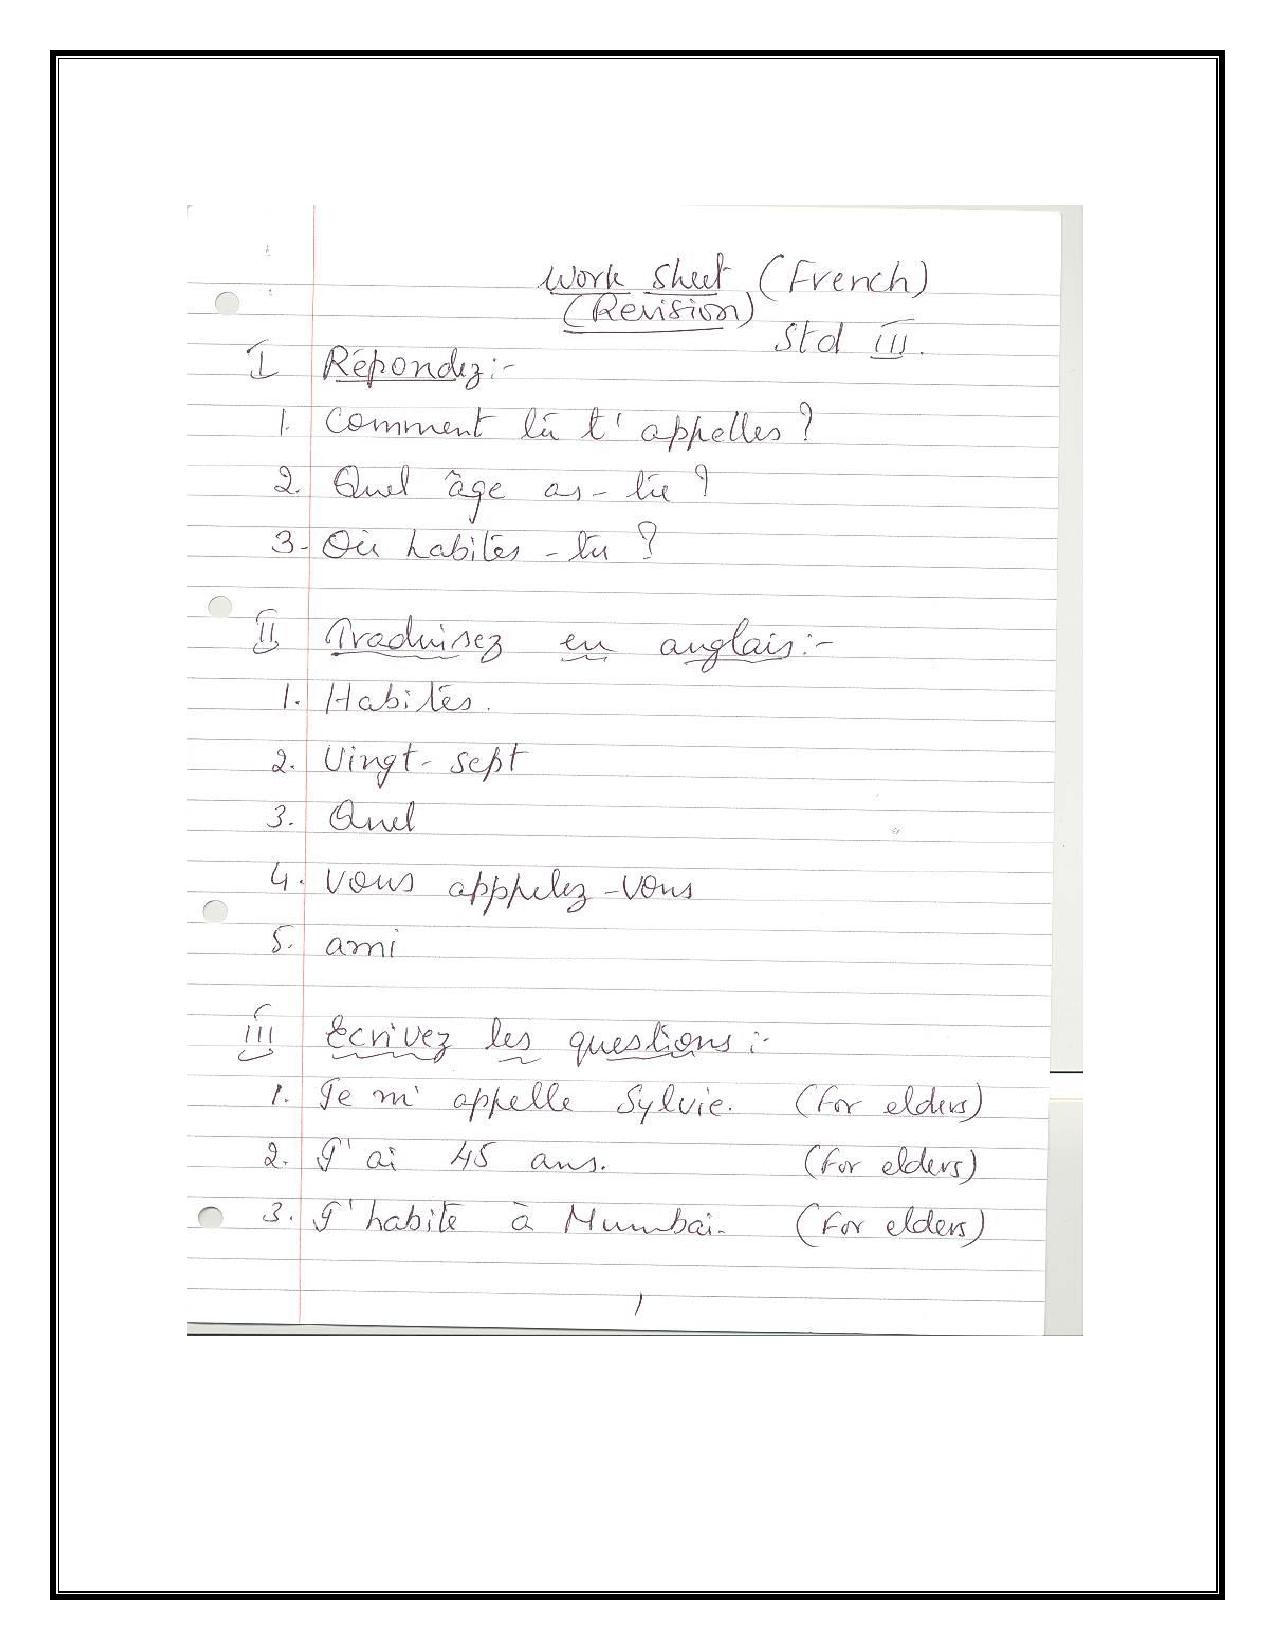 Work Sheet (French)
(Revision)
Std III.
I Répondez:-
1. Comment tu t'appelles?
2. Quel âge as-tu?
3. Où habites-tu?
II Traduisez en anglais:-
1. Habites.
2. Vingt-sept
3. Quel
4. Vous apppelez-vous
5. ami
III Ecrivez les questions:-
1. Je m'appelle Sylvie. (For elders)
2. J'ai 45 ans. (For elders)
3. J'habite à Mumbai. (For elders)
1